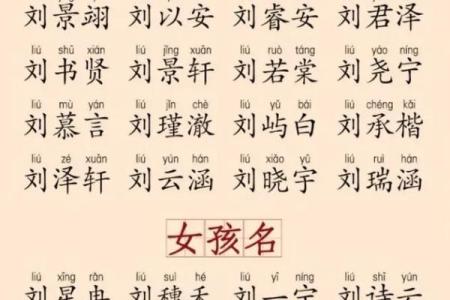 刘景翊 刘以安 刘睿安 刘君泽
liú shū xián liú jǐng xuān liú ruò táng liú yáo níng
刘书贤 刘景轩 刘若棠 刘尧宁
liú mù yán liú jǐn chè liú yǔ bái liú chéng kǎi
刘慕言 刘瑾澈 刘屿白 刘承楷
liú zé xuān liú yún hán liú xiǎo yǔ liú ruì hán
刘泽轩 刘云涵 刘晓宇 刘瑞涵
女孩名
liú xīng rǎn liú suì hé liú yī níng liú shī yún
刘星冉 刘穗禾 刘一宁 刘诗云